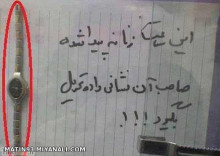 این ساعت زنانه پیدا شده
صاحب آن نشانی داده تحویل
بگیرد !!!
MATIN93.MIYANALI.COM